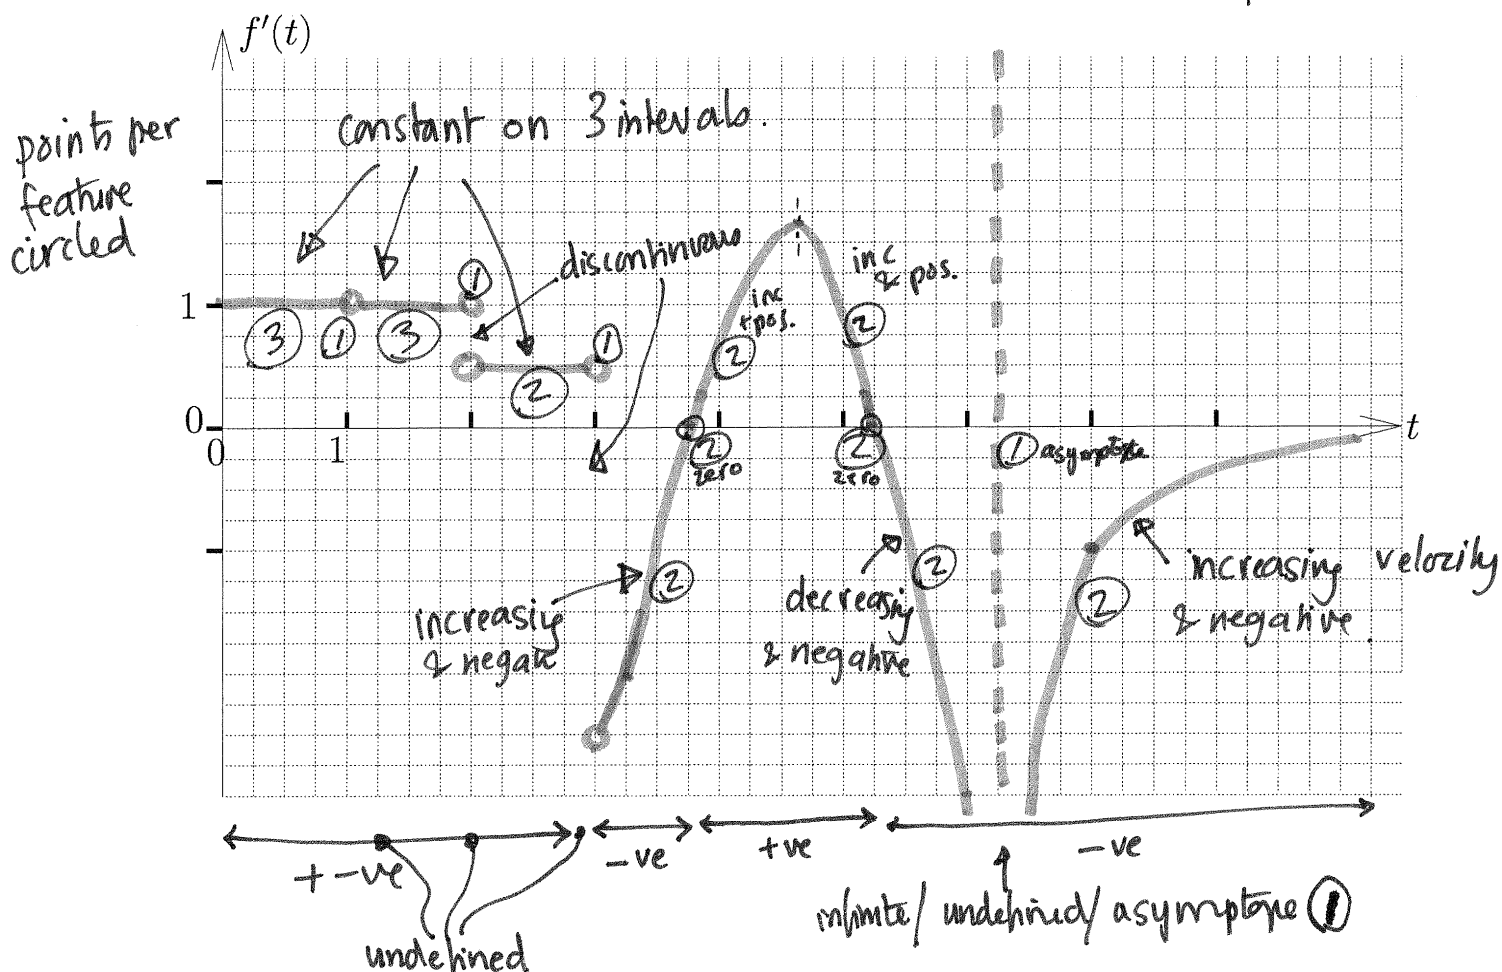 f'(t)
points per
feature
circled
constant on 3 intervals.
discontinuous
inc
& pos.
inc
+pos.
1
1
1
3
1
3
2
2
2
0
0
1
t
2
zero
2
zero
1 asymptote
increasing
& negative
2
decreasig
& negative
2
2
increasing velocity
& negative
+-ve
-ve
+ve
-ve
undefined
infinite/ undefined/ asymptope 1